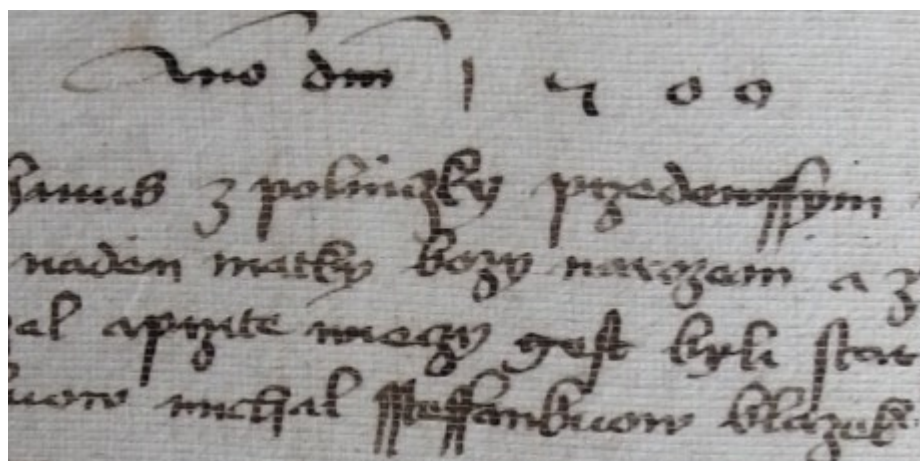 Ano dm 1 7 0 0
hanus z polniczky przedewssym
naden matky bozy narozem a z
el a przite miezy gest byli
uow michal sstessankuow blazek